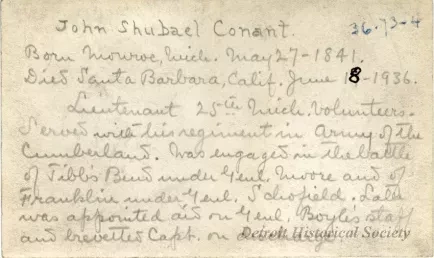 John Shubael Conant.
36.73-4
Born Monroe, Mich. May 27-1841.
Died Santa Barbara, Calif. June 18-1936.
Lieutenant 25th Mich. Volunteers.
Served with his regiment in Army of the
Cumberland. Was engaged in the battle
of Tibbs Bend under Genl. Moore and of
Franklin under Genl. Schofield. Later
was appointed aid on Genl. Boyles staff
and brevetted Capt. on
Detroit Historical Society